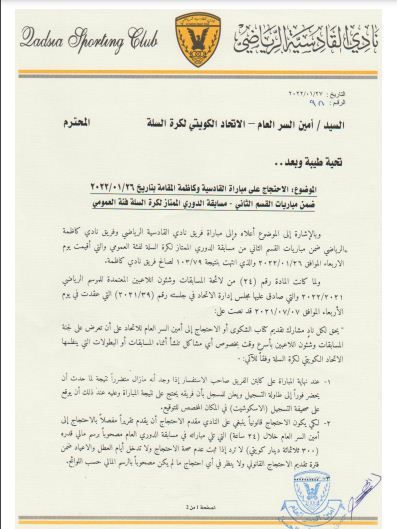 Qadsia Sporting Club
نادي القادسية الرياضي
التاريخ : ٢٠٢٢/٠١/٢٧
الرقم :
السيد / أمين السر العام – الاتحاد الكويتي لكرة السلة المحترم
تحية طيبة وبعد ..
الموضوع: الاحتجاج على مباراة القادسية وكاظمة المقامة بتاريخ ٢٠٢٢/٠١/٢٦
ضمن مباريات القسم الثاني - مسابقة الدوري الممتاز لكرة السلة فئة العمومي
وبالإشارة إلى الموضوع أعلاه وإلى مباراة فريق نادي القادسية الرياضي وفريق نادي كاظمة
الرياضي ضمن مباريات القسم الثاني من مسابقة الدوري الممتاز لكرة السلة لفئة العمومي والتي أقيمت يوم
الاربعاء الموافق ٢٠٢٢/٠١/٢٦ والذي انتهت بنتيجة ١٠٣/٧٩ لصالح فريق نادي كاظمة.
ولما كانت المادة رقم (٢٤) من لائحة المسابقات وشئون اللاعبين المعتمدة للموسم الرياضي
٢٠٢٢/٢٠٢١ والتي صادق عليها مجلس إدارة الاتحاد في جلسته رقم (٢٠٢١/٣٩) التي عقدت في يوم
الأربعاء الموافق ٢٠٢١/٠٧/٠٧ قد نصت على:
"يحق لكل ناد مشارك تقديم كتاب الشكوى أو الاحتجاج إلى أمين السر العام للاتحاد على أن تعرض على لجنة
المسابقات وشئون اللاعبين بأسرع وقت بخصوص أي مشاكل تنشأ أثناء المسابقات أو البطولات التي ينظمها
الاتحاد الكويتي لكرة السلة وفقاً للآتي:
١- عند نهاية المباراة على كابتن الفريق صاحب الاستفسار إذا وجد أنه مازال متضرراً نتيجة لما حدث أن
يحضر فوراً إلى طاولة التسجيل ويعلن للمسجل بأن فريقه يحتج على نتيجة المباراة وعليه عند ذلك أن يوقع
على صحيفة التسجيل (الاسكورشيت) في المكان المخصص للتوقيع.
٢- لكي يكون الاحتجاج قانونياً ينبغي على النادي مقدم الاحتجاج أن يقدم تقريراً مفصلاً بالاحتجاج إلى
أمين السر العام خلال (٢٤ ساعة) التي تلي مباراته في مسابقة الدوري العام مصحوباً برسم مالي قدره
(٣٠٠ ثلاثمائة دينار كويتي) لا ترد إذا ثبت عدم صحة الاحتجاج ولا تدخل أيام العطل والاعياد ضمن
فترة تقديم الاحتجاج القانوني ولا ينظر في أي احتجاج ما لم يكن مصحوباً بالرسم المالي حسب اللوائح.
الصفحة 1 من 2